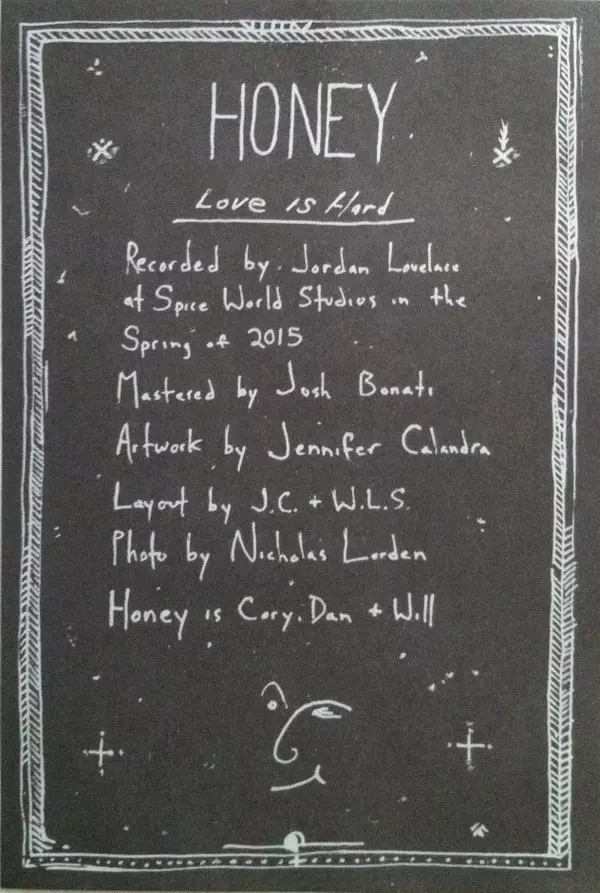 HONEY
Love is Hard
Recorded by Jordan Lovelace
at Spice World Studios in the
Spring of 2015
Mastered by Josh Bonati
Artwork by Jennifer Calandra
Layout by J.C. + W.L.S.
Photo by Nicholas Lorden
Honey is Cory, Dan + Will